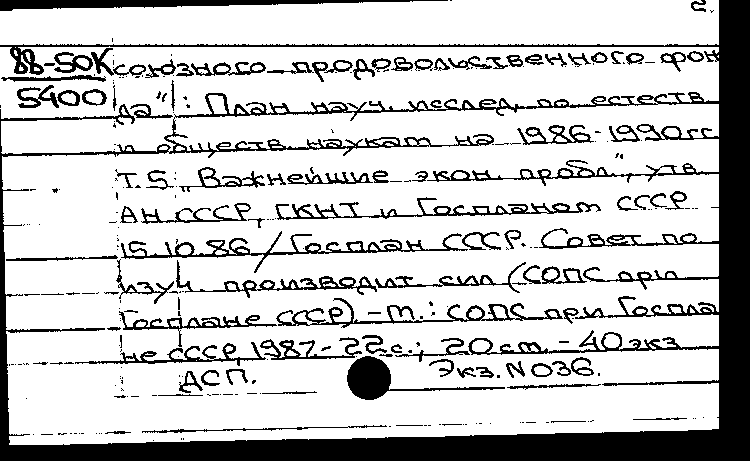 2.
88-5ОК союзного продовольственного фон
5400 да": План науч. исслед. по естеств.
и обществ. наукам на 1986-1990гг.
Т.5 „Важнейшие экон. пробл.", утв.
АН СССР, ГКНТ и Госпланом СССР
15.10.86 / Госплан СССР. Совет по
изуч. производит. сил (СОПС при
Госплане СССР) – М.: СОПС при Госпла
не СССР, 1987.- 22с.; 20см. – 40экз
ДСП. Экз. N 036.